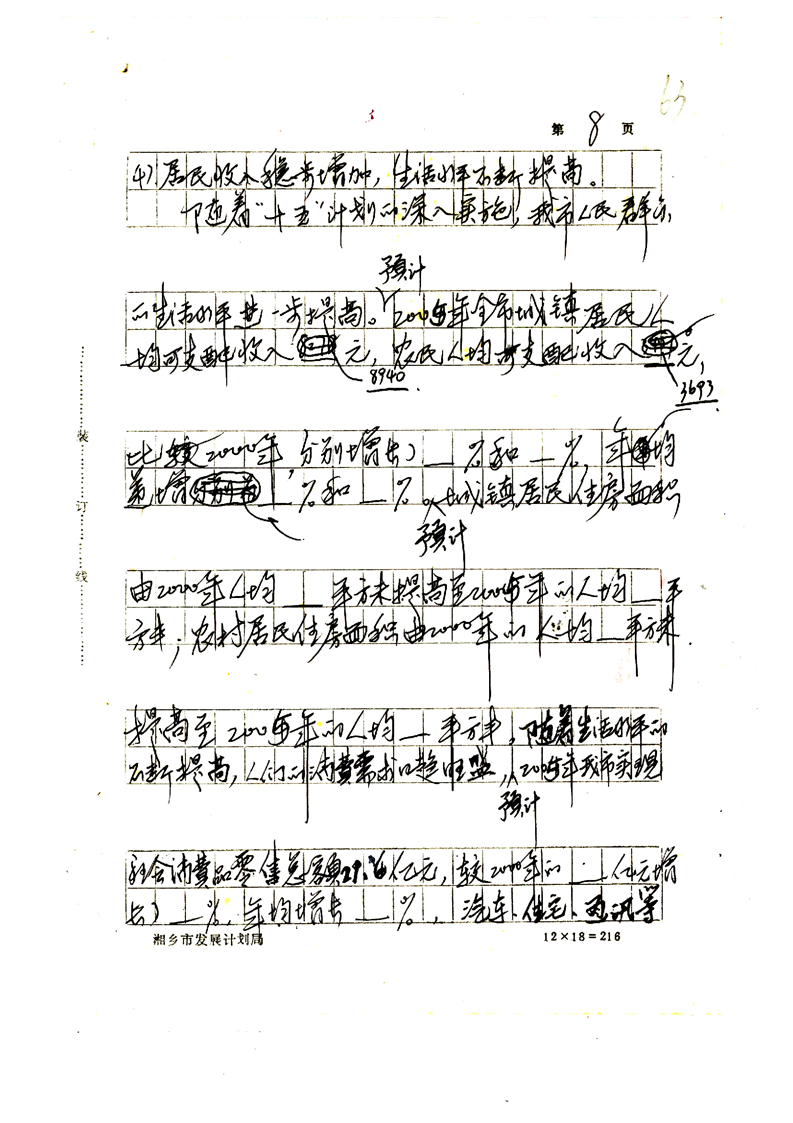 63
第 8 页
4）居民收入稳步增加，生活水平不断提高。
随着“十五”计划的深入实施，我市人民群众
预计
的生活水平进一步提高。2005年全市城镇居民人
均可支配收入 元，农民人均可支配收入 元，
8940
3693
比较2000年，分别增长了__%和__%，年均
递增__%和__%。城镇居民住房面积
预计
由2000年人均__平方米提高至2005年的人均__平
方米；农村居民住房面积由2000年的人均__平方米
提高至2005年的人均__平方米，随着生活水平的
不断提高，人们的消费需求日趋旺盛，2005年我市实现
预计
社会消费品零售总额29.6亿元，较2000年的__亿元增
长了__%，年均增长__%，汽车、住宅、通讯等
湘乡市发展计划局 12×18=216
装订线